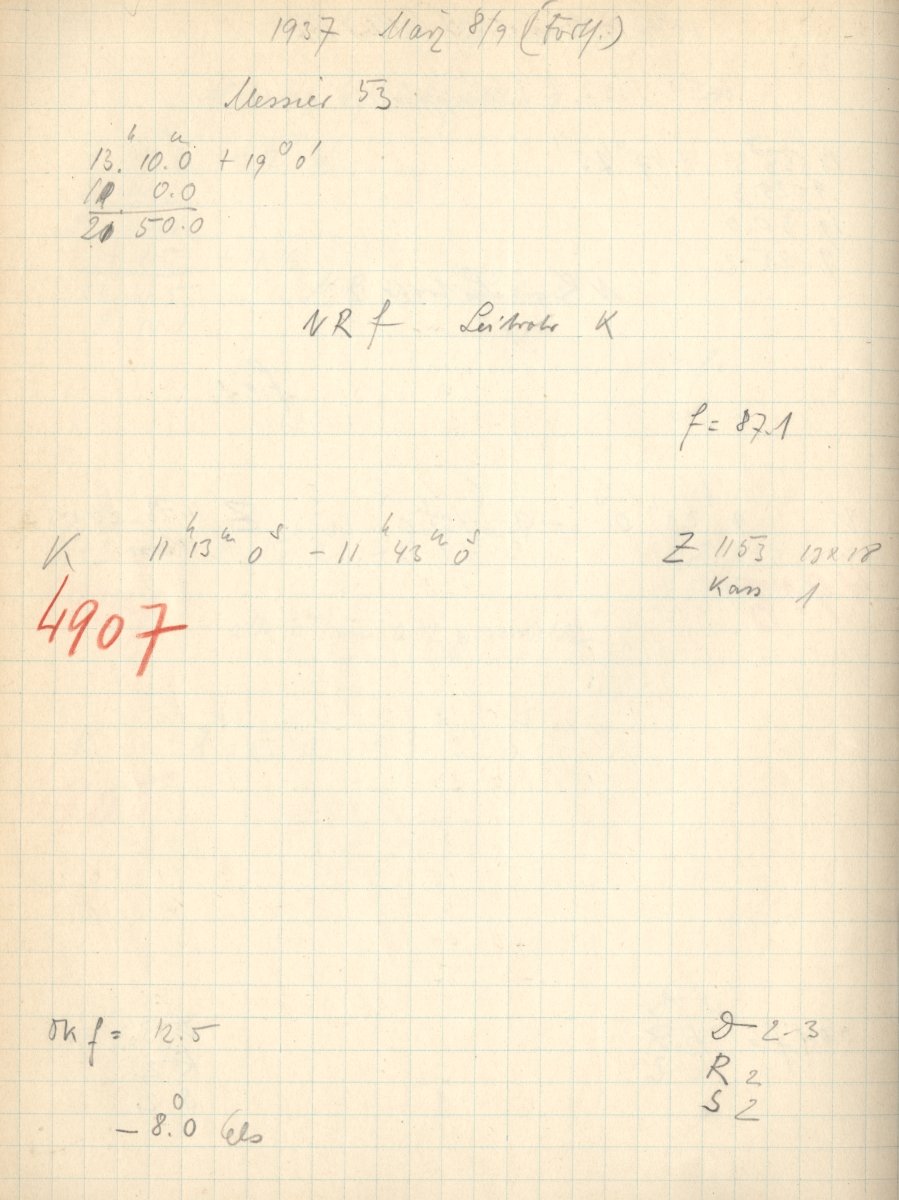 1937 März 8/9 (Forts.)
Messier 53
13.ʰ 10.ᵐ0 + 19° 0'
0.0
50.0
NR f Leitrohr K
f = 87.1
K 11ʰ 13ᵐ 0ˢ – 11ʰ 43ᵐ 0ˢ Z 1153 13x18
Kass 1
4907
f = 12.5 D 2-3
R 2
S 2
– 8.°0 Cels